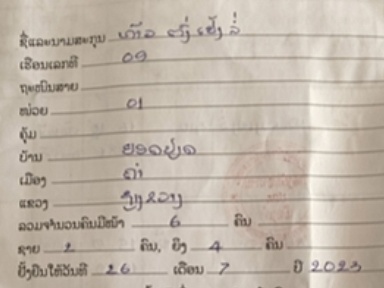 ຊື່ແລະນາມສະກຸນ
ເຮືອນເລກທີ 09
ຖະໜົນສາຍ
ໜ່ວຍ 01
ຄຸ້ມ
ບ້ານ
ເມືອງ ຄໍາ
ແຂວງ ຊຽງຂວາງ
ລວມຈຳນວນຄົນມີໜ້າ 6 ຄົນ
ຊາຍ 2 ຄົນ, ຍິງ 4 ຄົນ
ຢັ້ງຢືນໃຫ້ວັນທີ 26 ເດືອນ 7 ປີ 2023